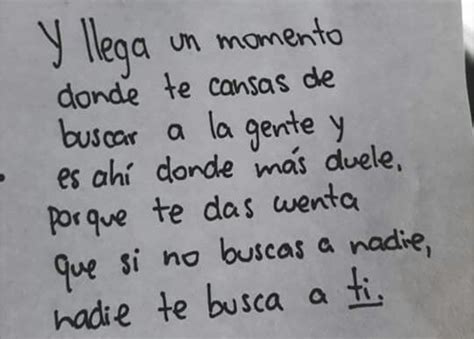 Y llega un momento
donde te cansas de
buscar a la gente y
es ahí donde más duele,
porque te das cuenta
que si no buscas a nadie,
nadie te busca a ti.